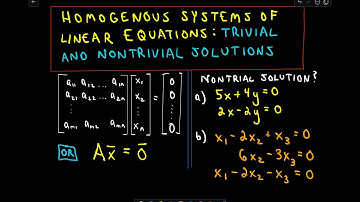 HOMOGENOUS SYSTEMS OF
LINEAR EQUATIONS: TRIVIAL
AND NONTRIVIAL SOLUTIONS
a₁₁ a₁₂ ... a₁ₙ x₁ 0
a₂₁ a₂₂ ... a₂ₙ x₂ = 0
⋮ ⋮ ⋮
aₘ₁ aₘ₂ aₘₙ xₙ 0
OR Ax̄ = 0̄
NONTRIAL SOLUTION?
a) 5x+4y=0
2x-2y=0
b) x₁-2x₂+x₃=0
6x₂-3x₃=0
x₁-2x₂-x₃=0